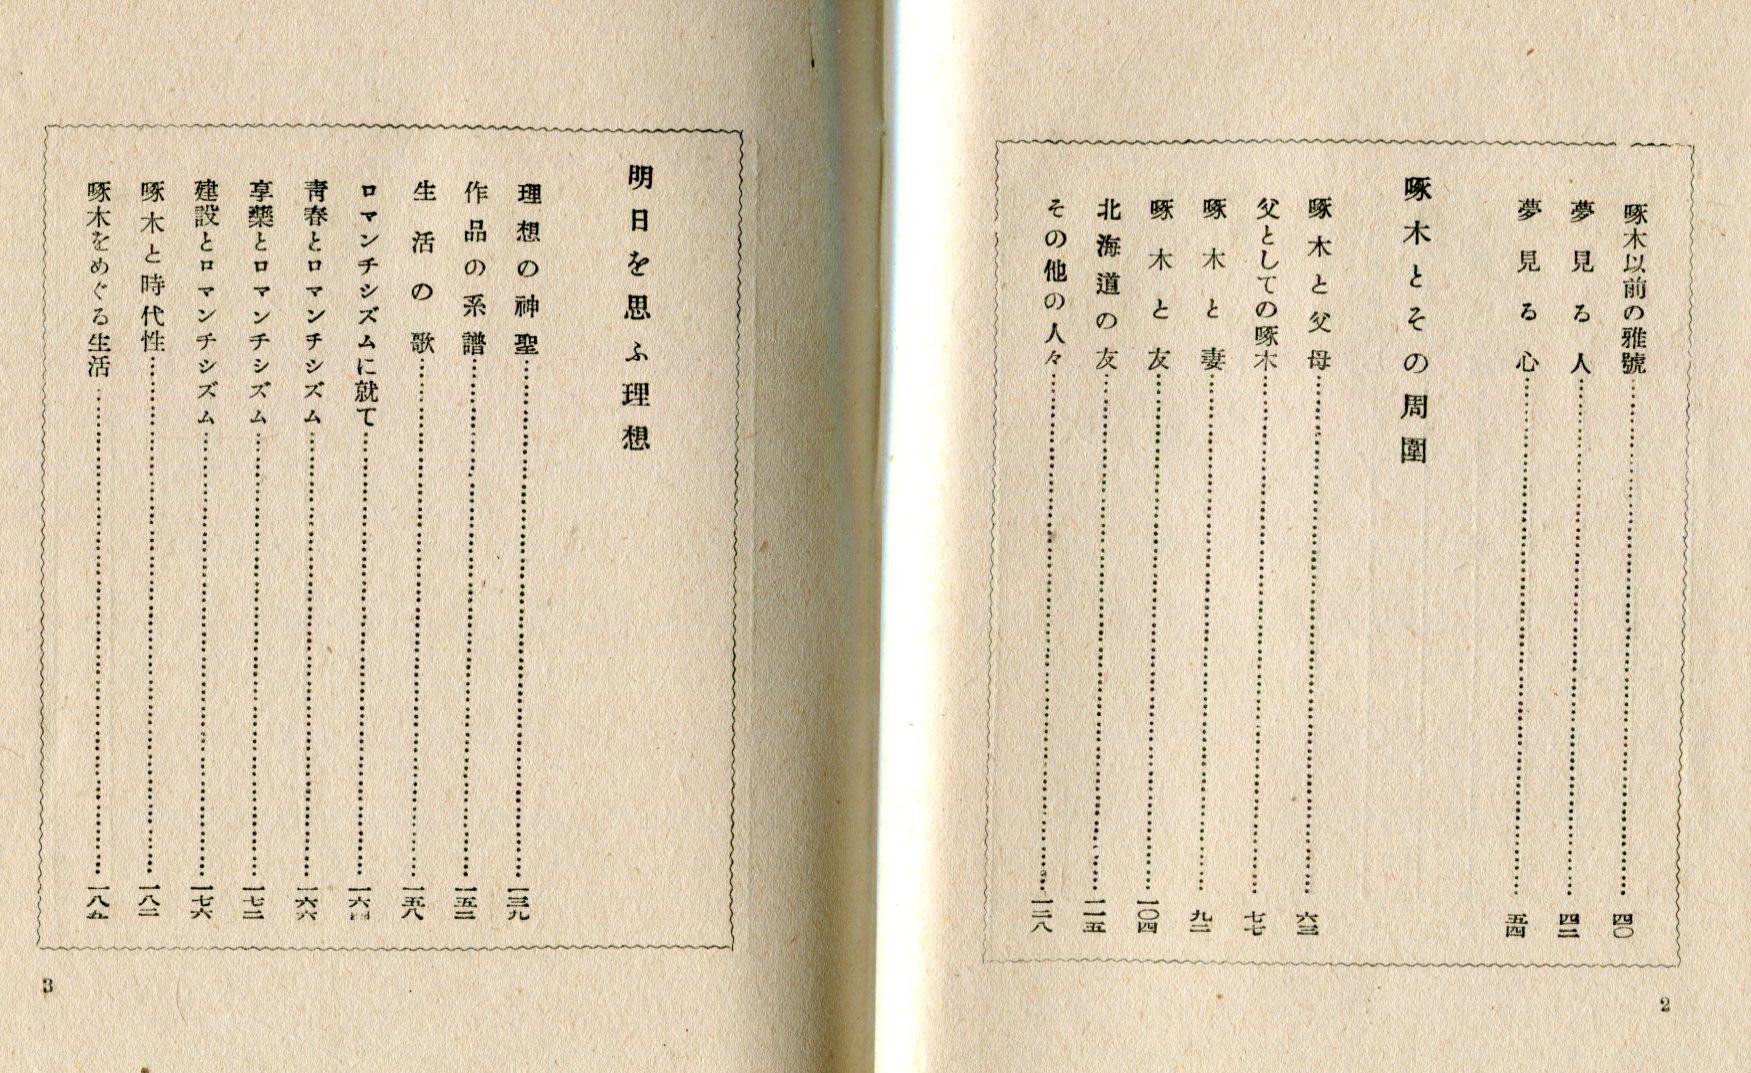 啄木以前の雅號……四〇
夢見る人……四二
夢見る心……五四
啄木とその周圍
啄木と父母……六三
父としての啄木……七七
啄木と妻……九二
啄木と友……一〇四
北海道の友……一一五
その他の人々……一二八
2
明日を思ふ理想
理想の神聖……一三九
作品の系譜……一五三
生活の歌……一五八
ロマンチシズムに就て……一六四
靑春とロマンチシズム……一六六
享樂とロマンチシズム……一七二
建設とロマンチシズム……一七六
啄木と時代性……一八二
啄木をめぐる生活……一八五
3